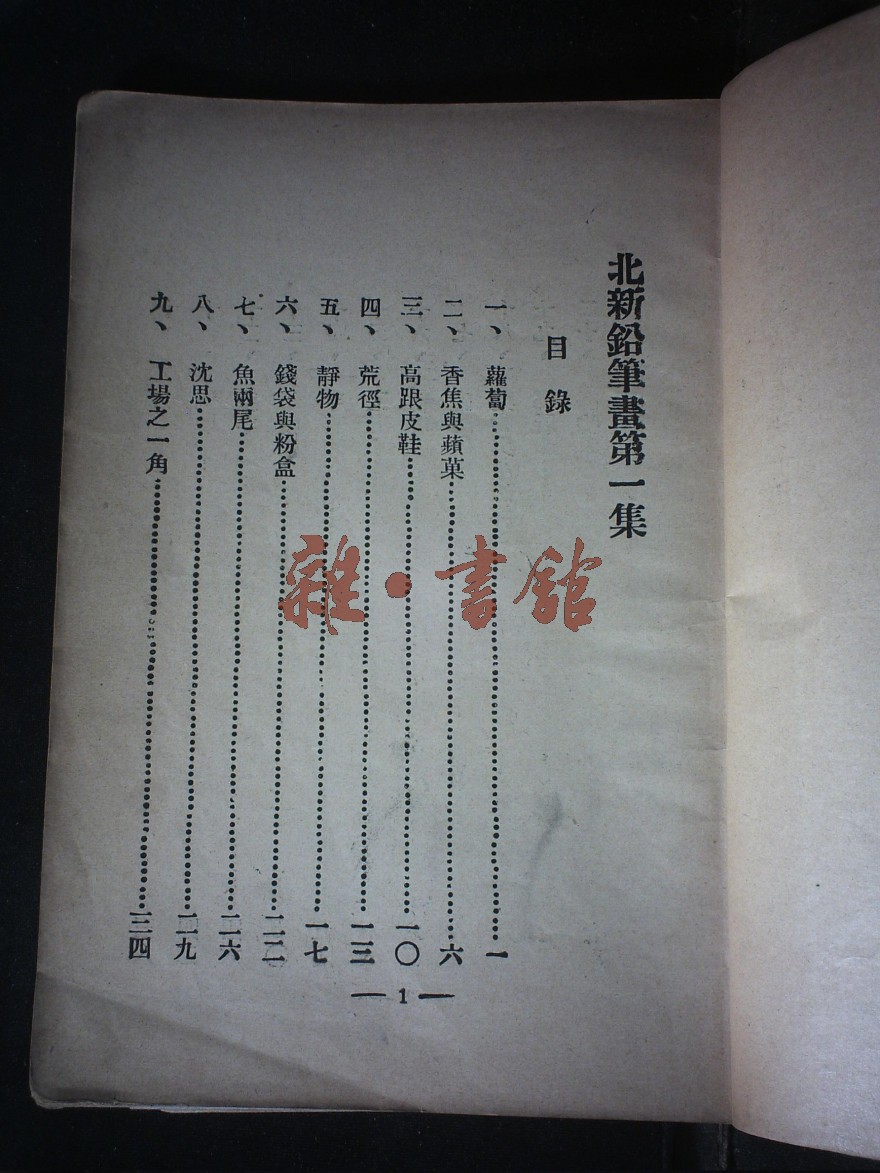 北新鉛筆畫第一集
目錄
一、蘿蔔⋯⋯一
二、香焦與蘋菓⋯⋯六
三、高跟皮鞋⋯⋯一〇
四、荒徑⋯⋯一三
五、靜物⋯⋯一七
六、錢袋與粉盒⋯⋯二二
七、魚兩尾⋯⋯二六
八、沈思⋯⋯二九
九、工場之一角⋯⋯三四
— 1 —
雜·書館